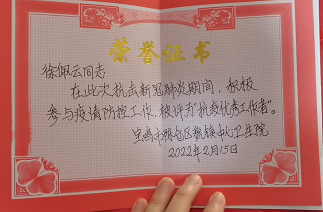 荣誉证书
徐佩云同志
在此次抗击新冠肺炎期间，积极
参与疫情防控工作，被评为“抗疫优秀工作者”。
宝鸡市陈仓区 镇中心卫生院
2022年2月15日